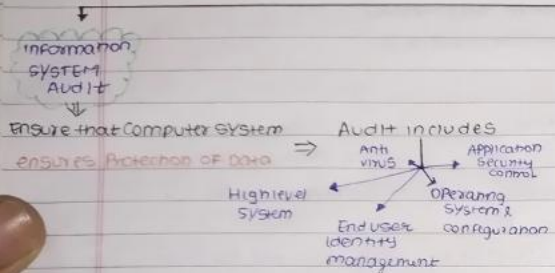 Information
SYSTEM
Audit
Ensure that Computer System
ensures Protection of Data
Audit includes
Anti
virus
Application
Security
control
High level
System
Operating
System &
configuration
End user
Identity
management